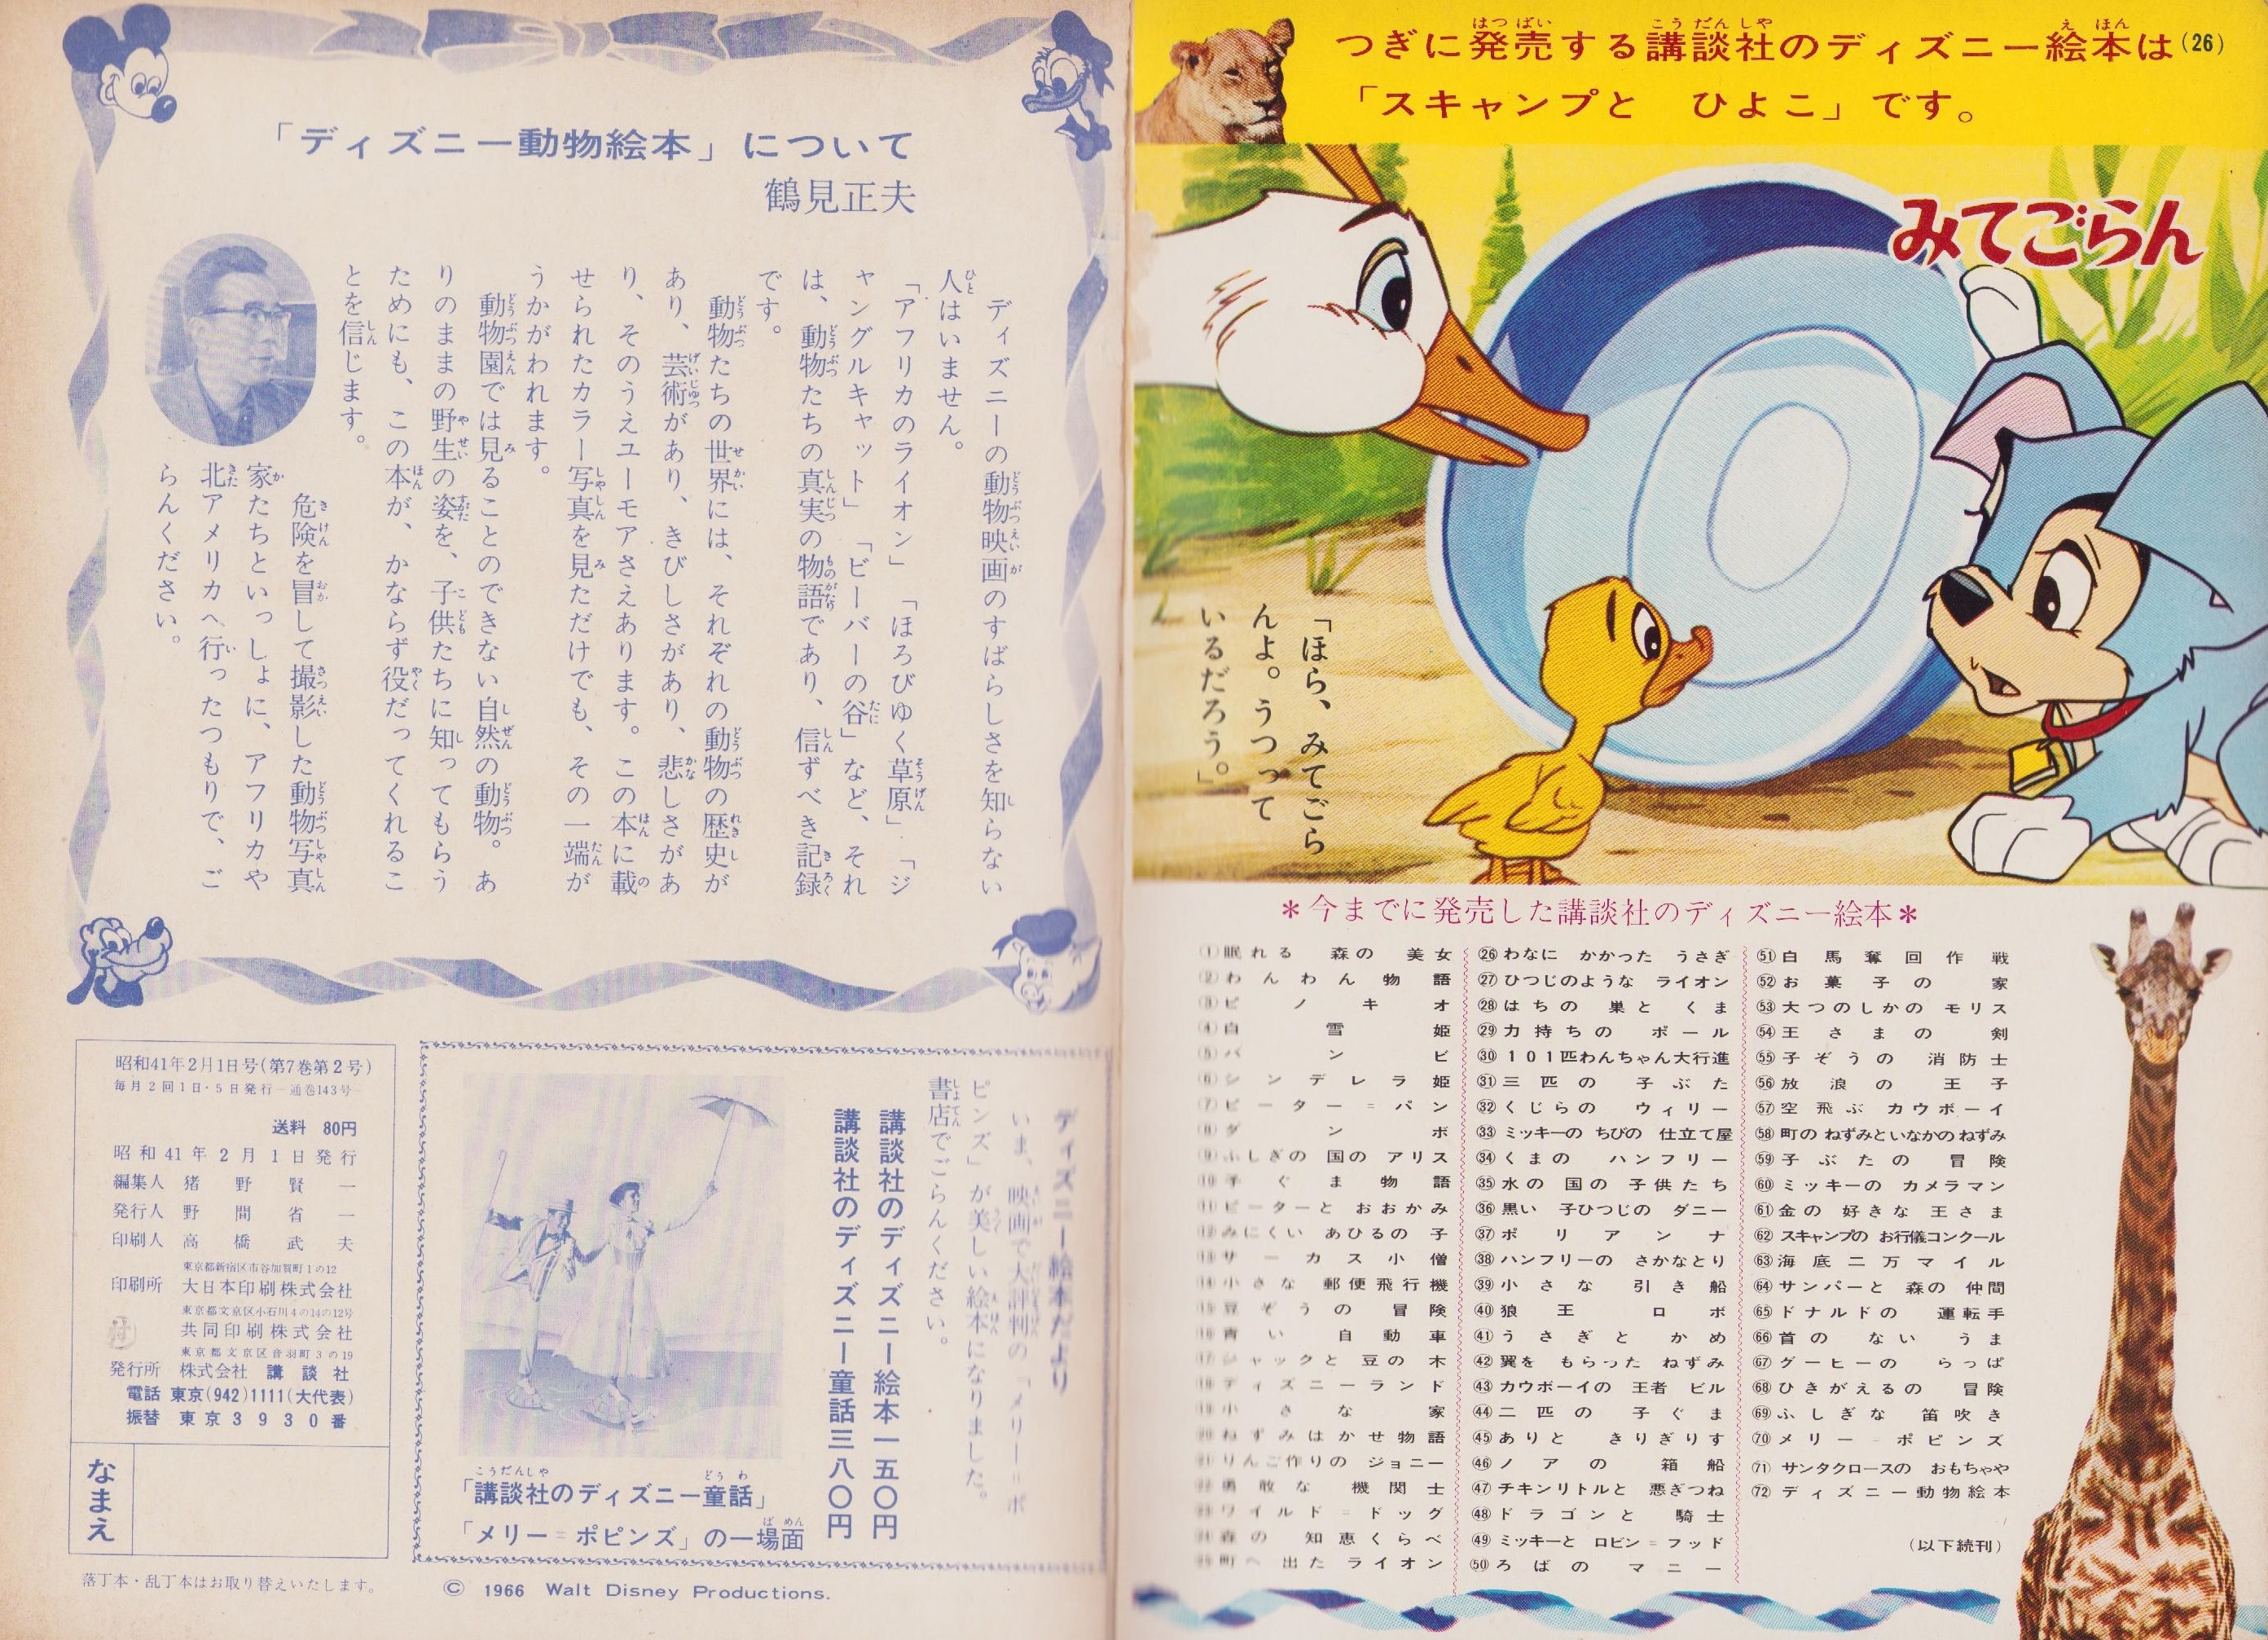 「ディズニー動物絵本」について
鶴見正夫
ディズニーの動物映画のすばらしさを知らない
人はいません。
「アフリカのライオン」「ほろびゆく草原」「ジ
ャングルキャット」「ビーバーの谷」など、それ
は、動物たちの真実の物語であり、信ずべき記録
です。
動物たちの世界には、それぞれの動物の歴史が
あり、芸術があり、きびしさがあり、悲しさがあ
り、そのうえユーモアさえあります。この本に載
せられたカラー写真を見ただけでも、その一端が
うかがわれます。
動物園では見ることのできない自然の動物。あ
りのままの野生の姿を、子供たちに知ってもらう
ためにも、この本が、かならず役だってくれるこ
とを信じます。
危険を冒して撮影した動物写真
家たちといっしょに、アフリカや
北アメリカへ行ったつもりで、ご
らんください。
昭和41年2月1日号(第7巻第2号)
毎月2回1日・5日発行―通巻143号―
送料 80円
昭和41年2月1日発行
編集人 猪野賢一
発行人 野間省一
印刷人 高橋武夫
東京都新宿区市谷加賀町1の12
印刷所 大日本印刷株式会社
東京都文京区小石川4の14の12号
共同印刷株式会社
東京都文京区音羽町3の19
発行所 株式会社 講談社
電話 東京(942)1111(大代表)
振替 東京3930番
なまえ
落丁本・乱丁本はお取り替えいたします。
ディズニー絵本だより
いま、映画で大評判の「メリー=ポ
ピンズ」が美しい絵本になりました。
書店でごらんください。
講談社のディズニー絵本一五〇円
講談社のディズニー童話三八〇円
「講談社のディズニー童話」
「メリー=ポピンズ」の一場面
© 1966 Walt Disney Productions.
つぎに発売する講談社のディズニー絵本は(26)
「スキャンプと ひよこ」です。
みてごらん
「ほら、みてごら
んよ。うつって
いるだろう。」
*今までに発売した講談社のディズニー絵本*
①眠れる 森の 美女
②わんわん物語
③ピノキオ
④白雪姫
⑤バンビ
⑥シンデレラ姫
⑦ピーター=パン
⑧ダンボ
⑨ふしぎの 国の アリス
⑩子ぐま物語
⑪ピーターと おおかみ
⑫みにくい あひるの 子
⑬サーカス小僧
⑭小さな 郵便飛行機
⑮豆ぞうの 冒険
⑯青い 自動車
⑰ジャックと 豆の 木
⑱ディズニーランド
⑲小さな家
⑳ねずみはかせ物語
㉑りんご作りの ジョニー
㉒勇敢な 機関士
㉓ワイルド=ドッグ
㉔森の 知恵くらべ
㉕町へ 出た ライオン
㉖わなに かかった うさぎ
㉗ひつじのような ライオン
㉘はちの 巣と くま
㉙力持ちの ポール
㉚101匹わんちゃん大行進
㉛三匹の 子ぶた
㉜くじらの ウィリー
㉝ミッキーの ちびの 仕立て屋
㉞くまの ハンフリー
㉟水の 国の 子供たち
㊱黒い 子ひつじの ダニー
㊲ポリアンナ
㊳ハンフリーの さかなとり
㊴小さな 引き船
㊵狼王 ロボ
㊶うさぎと かめ
㊷翼を もらった ねずみ
㊸カウボーイの 王者 ビル
㊹二匹の 子ぐま
㊺ありと きりぎりす
㊻ノアの 箱船
㊼チキンリトルと 悪ぎつね
㊽ドラゴンと 騎士
㊾ミッキーと ロビン=フッド
㊿ろばの マニー
(51)白馬奪回作戦
(52)お菓子の 家
(53)大つのしかの モリス
(54)王さまの 剣
(55)子ぞうの 消防士
(56)放浪の 王子
(57)空飛ぶ カウボーイ
(58)町の ねずみといなかの ねずみ
(59)子ぶたの 冒険
(60)ミッキーの カメラマン
(61)金の 好きな 王さま
(62)スキャンプの お行儀コンクール
(63)海底二万マイル
(64)サンパーと 森の 仲間
(65)ドナルドの 運転手
(66)首の ない うま
(67)グーヒーの らっぱ
(68)ひきがえるの 冒険
(69)ふしぎな 笛吹き
(70)メリー=ポピンズ
(71)サンタクロースの おもちゃや
(72)ディズニー動物絵本
(以下続刊)